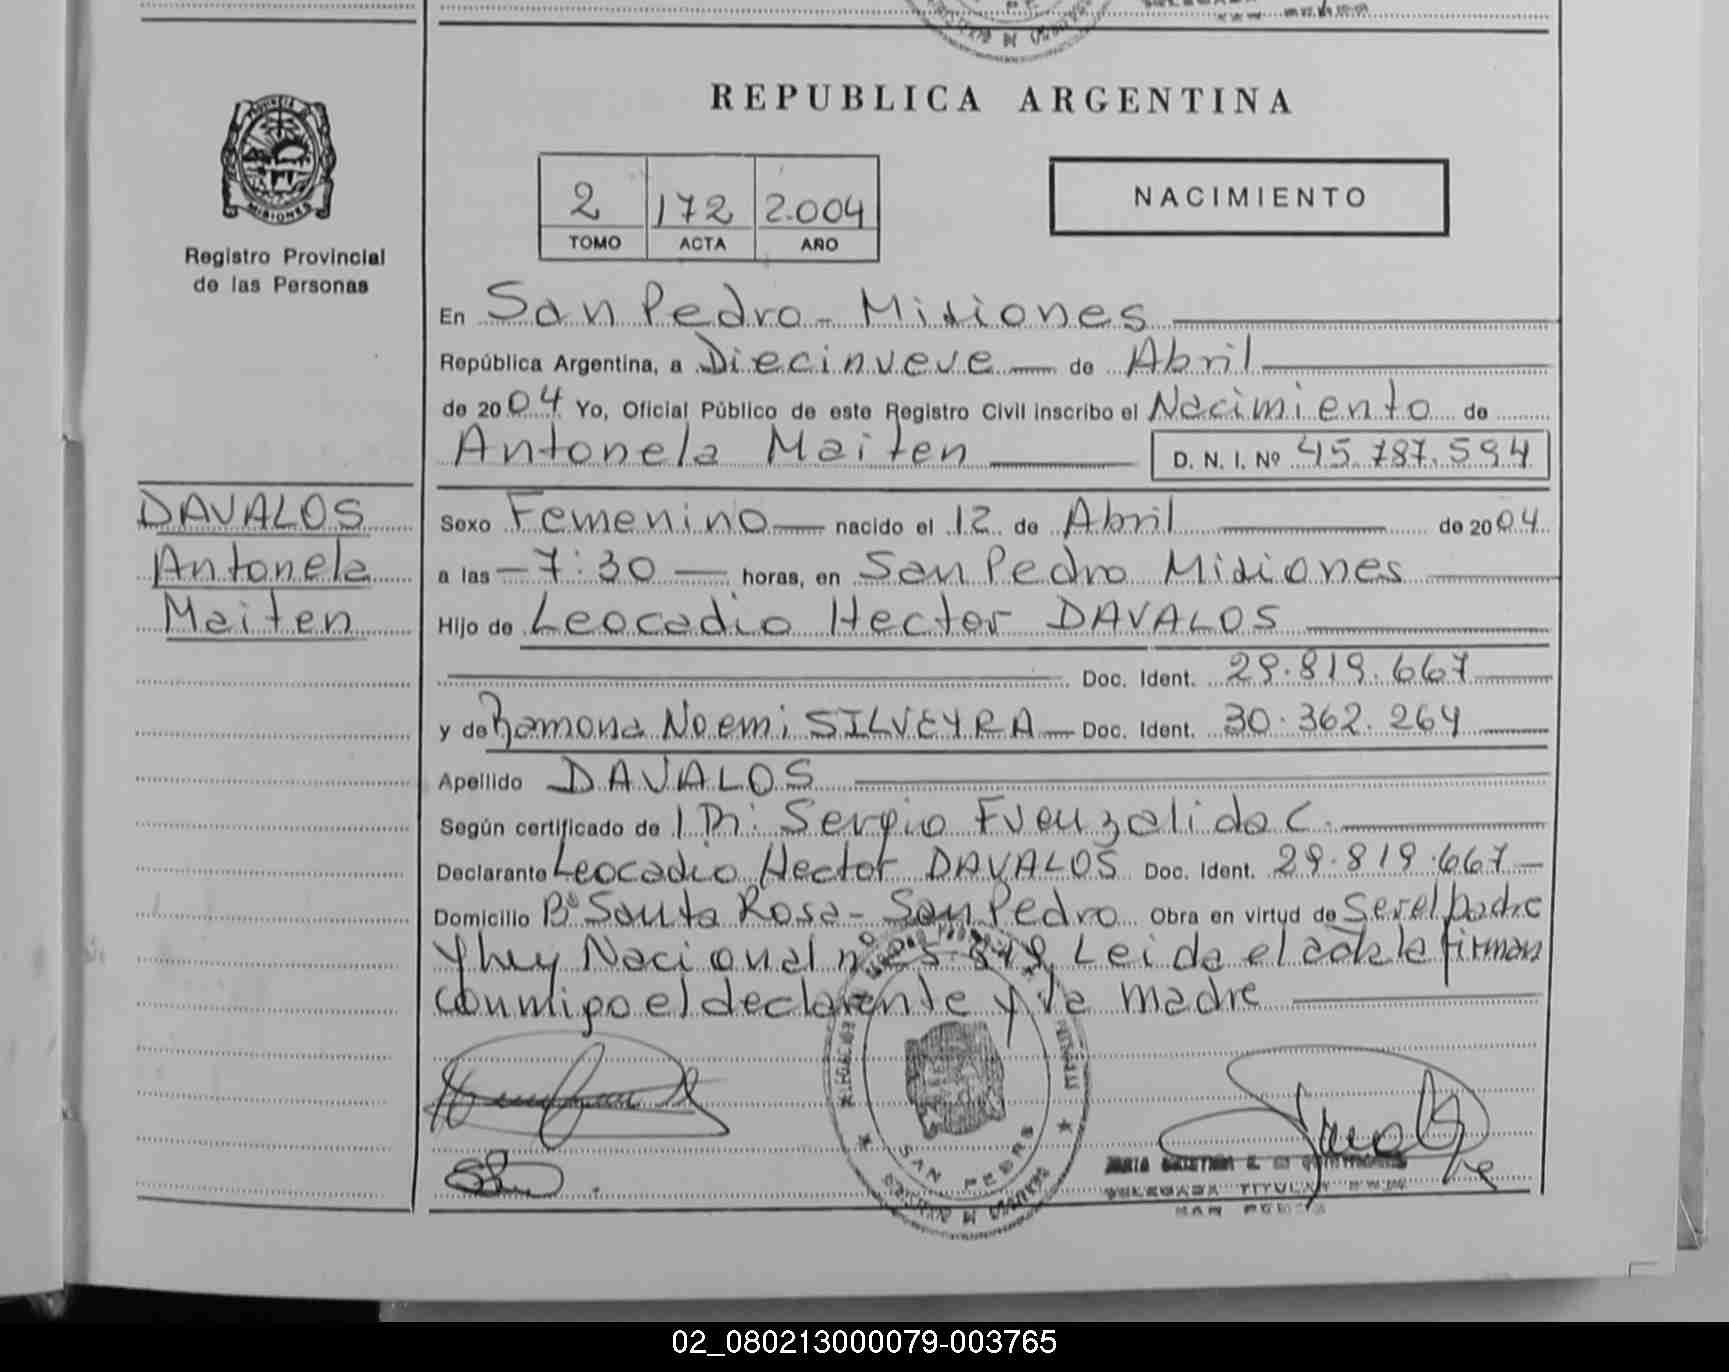 REPUBLICA ARGENTINA
2 172 2.004
TOMO ACTA AÑO
NACIMIENTO
MISIONES
Registro Provincial
de las Personas
En San Pedro - Misiones
República Argentina, a Diecinueve de Abril
de 2004 Yo, Oficial Público de este Registro Civil inscribo el Nacimiento de
Antonela Maiten D. N. I. Nº 45.787.594
DAVALOS
Antonela
Maiten
Sexo Femenino nacido el 12 de Abril de 2004
a las - 7:30 - horas, en San Pedro Misiones
Hijo de Leocadio Hector DAVALOS
Doc. Ident. 29.819.667
y de Ramona Noemi SILVEYRA Doc. Ident. 30.362.264
Apellido DAVALOS
Según certificado de Dr: Sergio Fuenzalida C.
Declarante Leocadio Hector DAVALOS Doc. Ident. 29.819.667
Domicilio Bº Santa Rosa - San Pedro Obra en virtud de Ser el padre
y ley Nacional nº Leida el acta la firman
conmigo el declarante y la madre
SAN PEDRO
DELEGADA TITULAR
SAN PEDRO
02_080213000079-003765